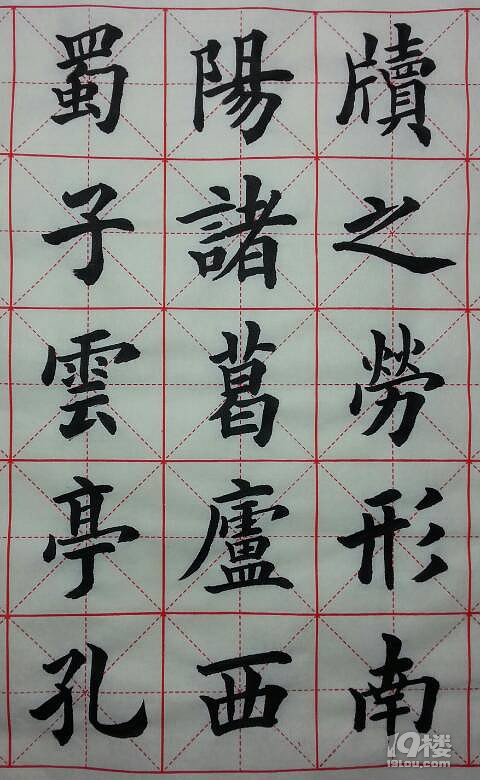 牘之勞形南
陽諸葛廬西
蜀子雲亭孔
19楼
19lou.com